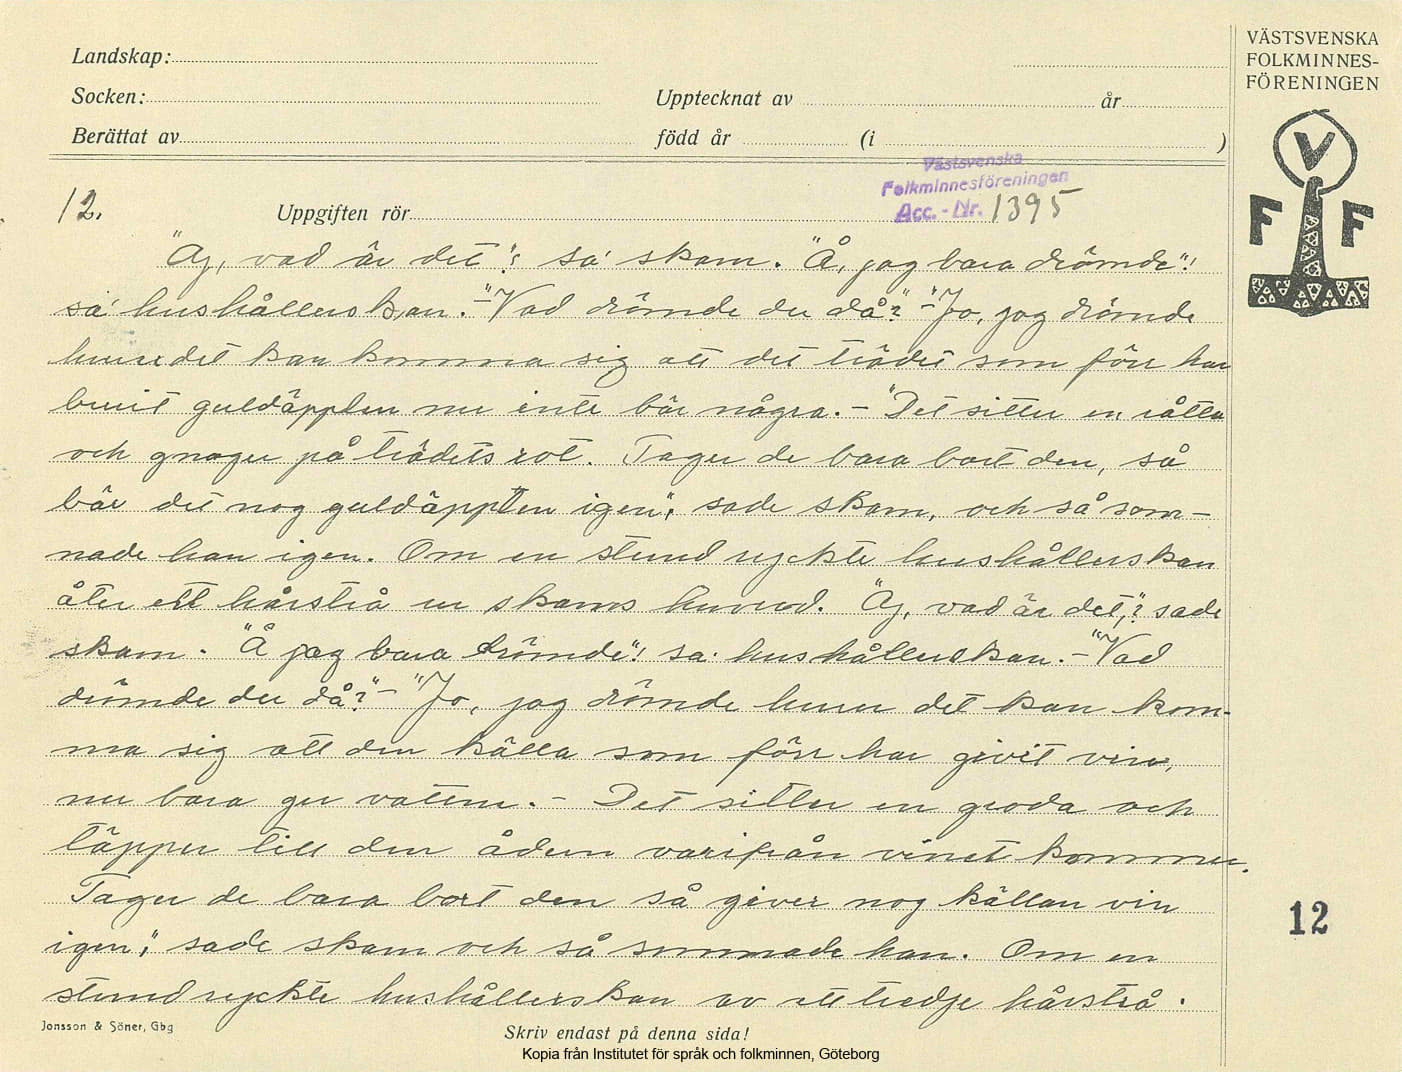 Landskap:
Socken:
Upptecknat av år
Berättat av
född år (i )
VÄSTSVENSKA
FOLKMINNES-
FÖRENINGEN
V
F F
Västsvenska
Folkminnesföreningen
Acc. - Nr. 1395
12.
Uppgiften rör
"Aj, vad är det"? sa' skam. "Å, jag bara drömde"!
sa' hushållerskan. -"Vad drömde du då?" -"Jo, jag drömde
huru det kan komma sig att det trädet som förr har
burit guldäpplen nu inte bär några. - "Det sitter en råtta
och gnager på trädets rot. Tager de bara bort den, så
bär det nog guldäpplen igen", sade skam, och så som-
nade han igen. Om en stund ryckte hushållerskan
åter ett hårstrå ur skams huvud. "Aj, vad är det,"? sade
skam. "Å jag bara drömde"! sa' hushållerskan. -"Vad
drömde du då?" - "Jo, jag drömde huru det kan kom-
ma sig att den källa som förr har givit vin,
nu bara ger vatten. - Det sitter en groda och
täpper till den ådern varifrån vinet kommer.
Tager de bara bort den så giver nog källan vin
igen", sade skam och så somnade han. Om en
stund ryckte hushållerskan av ett tredje hårstrå.
12
Jonsson & Söner, Gbg
Skriv endast på denna sida!
Kopia från Institutet för språk och folkminnen, Göteborg